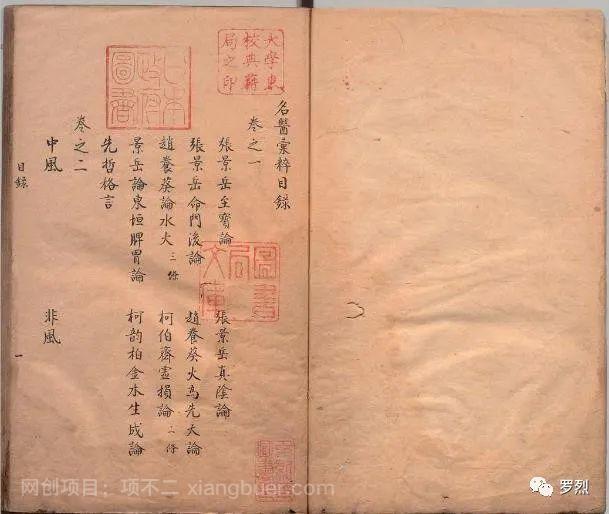 大學東校典籍局之印
日本政府圖書
名醫彙粹目錄
卷之一
張景岳至寶論 張景岳真陰論
張景岳命門後論 趙養葵火為先天論
趙養葵論水火 三條 柯伯齊虛損論 二條
景岳論東垣脾胃論 柯韵柏金水生成論
先哲格言
卷之二
中風 非風
目錄 一
圖書局文庫
网创项目：项不二 xiangbuer.com
罗烈